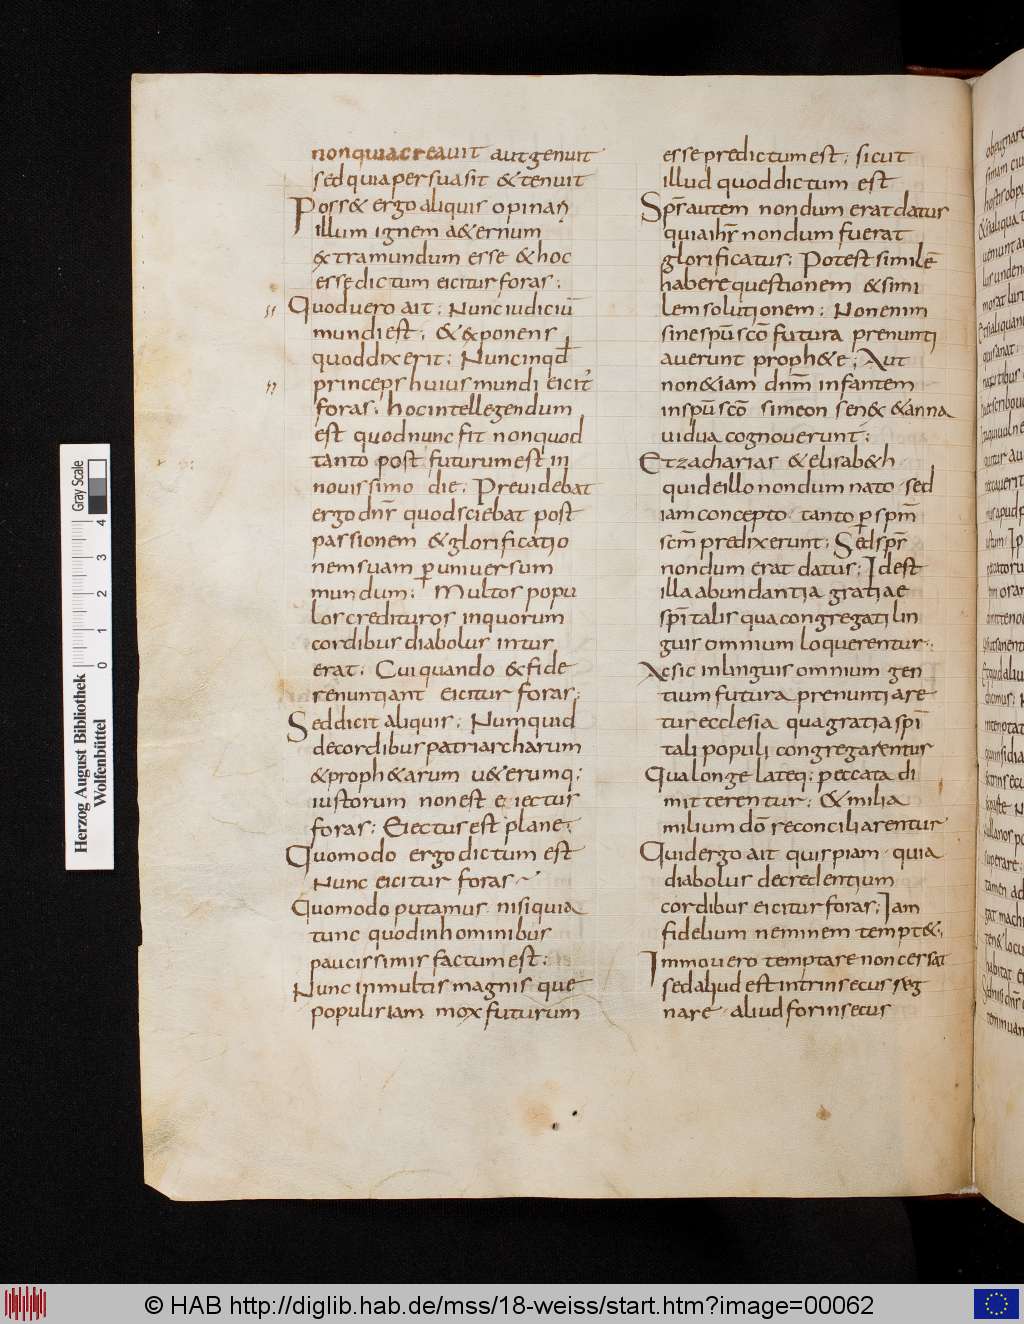 non quia creavit aut genuit
sed quia persuasit & tenuit
Poss& ergo aliquis opinari
illum ignem a&ernum
extramundum esse & hoc
esse dictum eicitur foras;
Quod vero ait; Nunc iudiciū
mundi est; & exponens
quod dixerit; Nunc inqd
princeps huius mundi eicit᷒
foras; hoc intellegendum
est quod nunc fit non quod
tanto post futurum est in
novissimo die; Previdebat
ergo dnr quod sciebat post
passionem & glorificatio
nem suam ꝑ universum
mundum; Multos popu
los credituros in quorum
cordibus diabolus intus
erat; Cui quando & fide
renuntiant eicitur foras;
Sed dicit aliquis; Numquid
de cordibus patriarcharum
& proph&arum v&erumq;
iustorum non est eiectus
foras; Eiectus est plane;
Quomodo ergo dictum est
Nunc eicitur foras
Quomodo putamus nisi quia
tunc quod in hominibus
paucissimis factum est;
Nunc in multis magnis que
populis iam mox futurum
esse predictum est; sicut
illud quod dictum est
Spr̄ autem nondum erat datus
quia ihr̄ nondum fuerat
glorificatus; Potest similē
habere questionem & simi
lem solutionem; Non enim
sine spū scō futura prenunti
averunt proph&e; Aut
non &iam dnm̄ infantem
in spū scō simeon sen& & anna
vidua cognoverunt;
Et zacharias & elisab&h
qui de illo nondum nato sed
iam concepto tanto ꝑ spm̄
scm̄ predixerunt; Sed spr̄
nondum erat datus; Id est
illa abundantia gratiae
spī talis qua congregati lin
guis omnium loquerentur;
Ac sic in linguis omnium gen
tium futura prenuntiare
tur ecclesia qua gratia spī
tali populi congregarentur
Qua longe lateq; peccata di
mitterentur; & milia
milium dō reconciliarentur
Quid ergo ait quispiam quia
diabolus de credentium
cordibus eicitur foras; Iam
fidelium neminem tempt&;
Immo vero temptare non cessat
sed aliud est intrinsecus reg
nare aliud forinsecus
Herzog August Bibliothek
Wolfenbüttel
Gray Scale
0 1 2 3 4
© HAB http://diglib.hab.de/mss/18-weiss/start.htm?image=00062